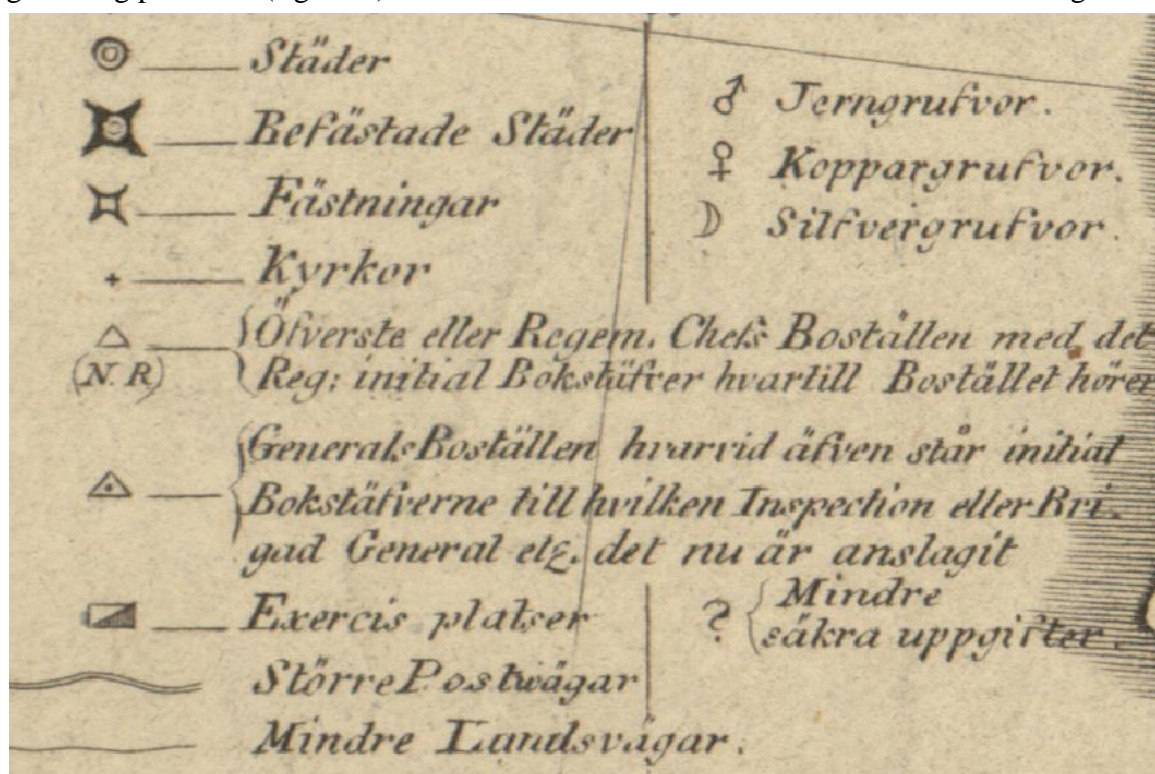 Städer
Befästade Städer
Fästningar
Kyrkor
Öfverste eller Regem. Chefs Boställen med det
(N. R) Reg: initial Bokstäfver hvartill Bostället hörer
Generals Boställen hvarvid äfven står initial
Bokstäfverne till hvilken Inspection eller Bri-
gad General etz. det nu är anslagit
Exercis platser
Större Postwägar
Mindre Landsvägar.
♂ Jerngrufvor.
♀ Koppargrufvor.
☽ Silfvergrufvor.
? Mindre
säkra uppgifter.